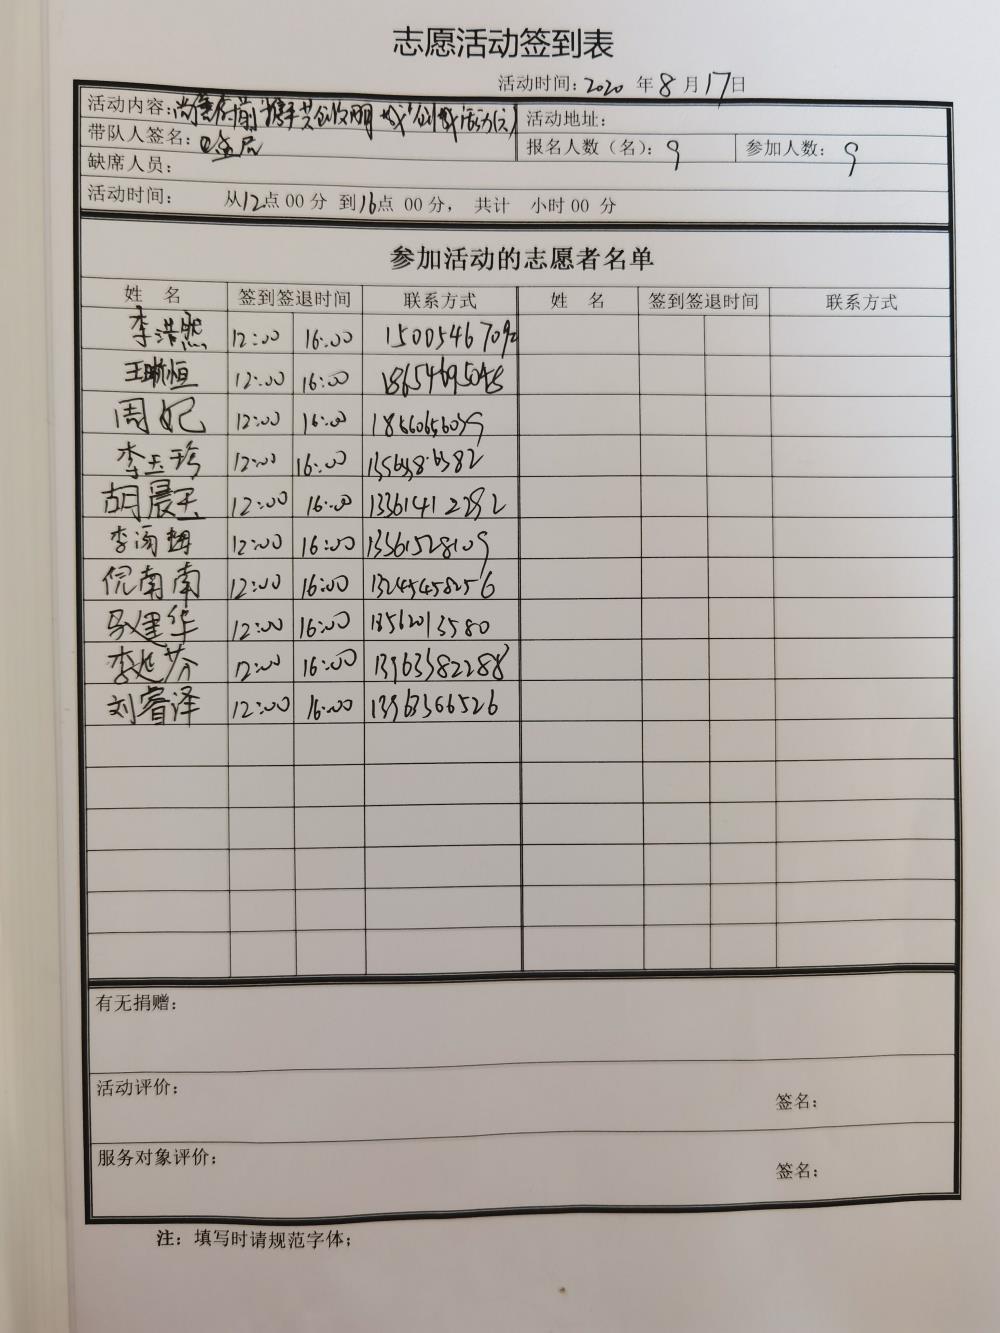 志愿活动签到表
活动时间：2020 年 8 月 17 日
活动内容：
活动地址：
带队人签名：
报名人数（名）：9 参加人数：9
缺席人员：
活动时间： 从12点 00 分 到16点 00 分， 共计 小时 00 分
参加活动的志愿者名单
姓 名 签到签退时间 联系方式 姓 名 签到签退时间 联系方式
李浩然 12:00 16:00
王晰恒 12:00 16:00
周妃 12:00 16:00
李玉珍 12:00 16:00
胡晨玉 12:00 16:00 13361412292
李 12:00 16:00 13361528109
倪南南 12:00 16:00
马建华 12:00 16:00 13562013580
李 芬 12:00 16:00 13963582288
刘睿泽 12:00 16:00 13963566526
有无捐赠：
活动评价：
签名：
服务对象评价：
签名：
注：填写时请规范字体；